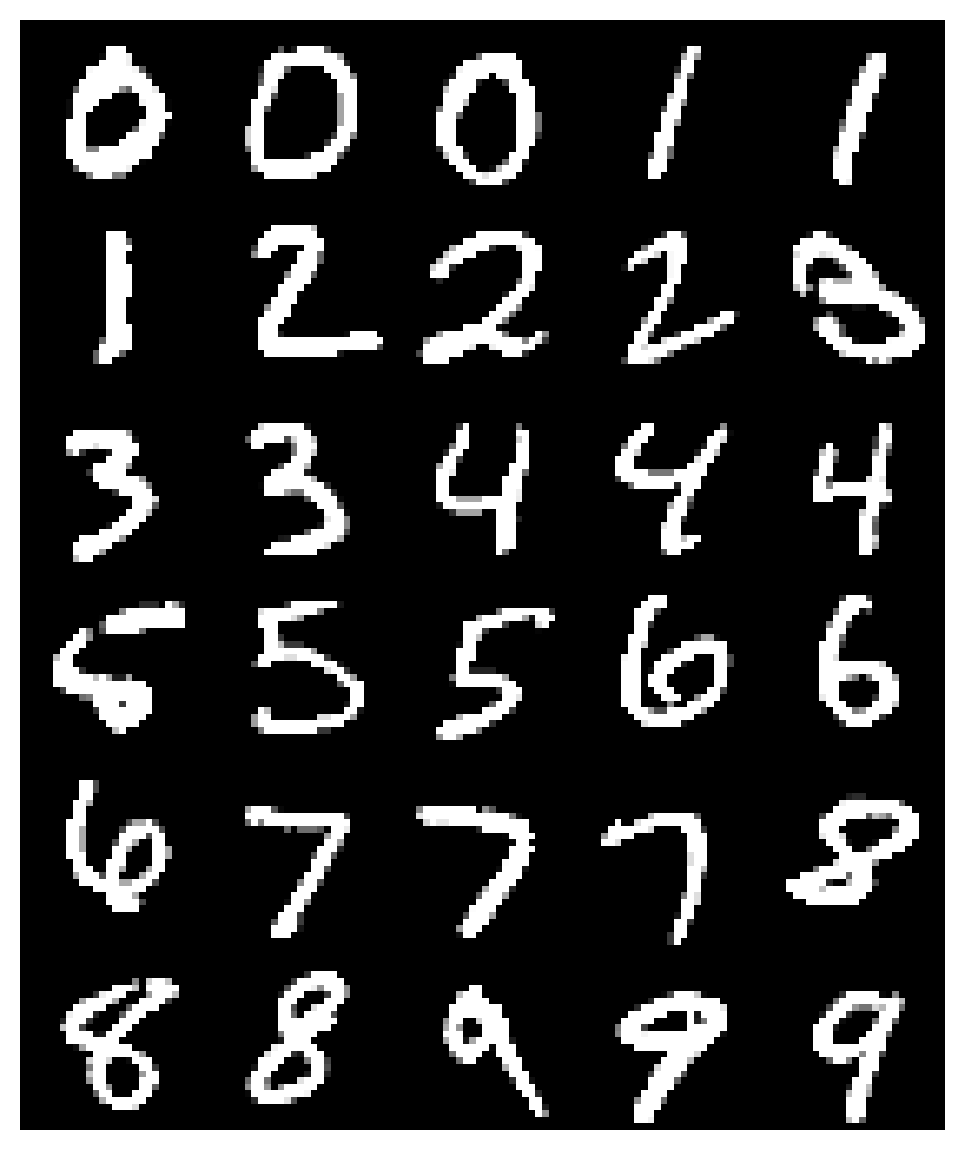 0 0 0 1 1
1 2 2 2 3
3 3 4 4 4
5 5 5 6 6
6 7 7 7 8
8 8 9 9 9